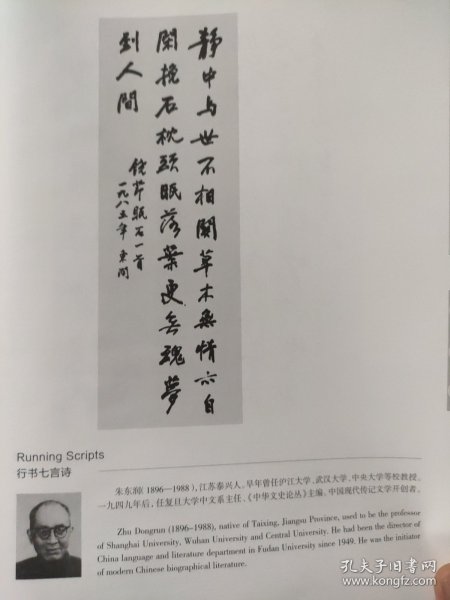 靜中与世不相關草木無情亦自
閑挽石枕頭眠落葉更无魂夢
到人間
饶节眠石一首
一九八五年 東润
Running Scripts
行书七言诗
朱东润(1896—1988),江苏泰兴人。早年曾任沪江大学、武汉大学、中央大学等校教授。
一九四九年后,任复旦大学中文系主任、《中华文史论丛》主编。中国现代传记文学开创者。
Zhu Dongrun (1896-1988), native of Taixing, Jiangsu Province, used to be the professor
of Shanghai University, Wuhan University and Central University. He had been the director of
China language and literature department in Fudan University since 1949. He was the initiator
of modern Chinese biographical literature.
孔夫子旧书网